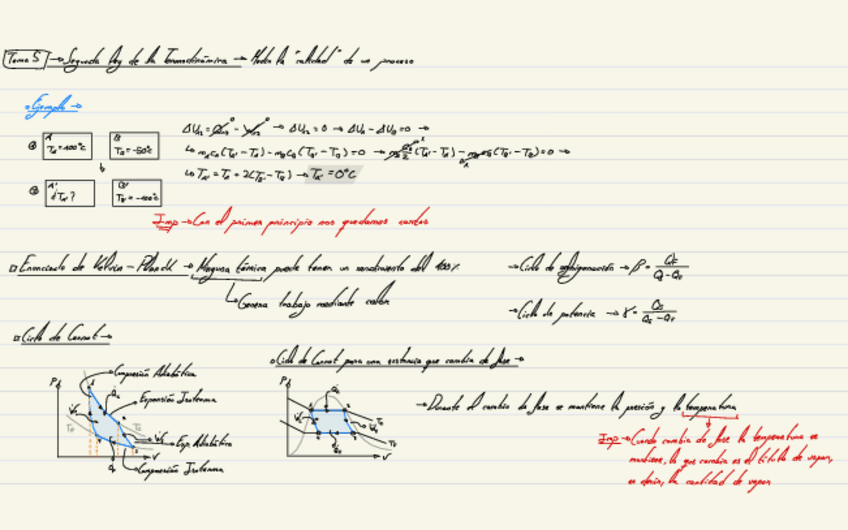 Tema 5 → Segunda ley de la Termodinámica → Mide la "calidad" de un proceso
Ejemplo →
A B
① TA=100°C TB=-50°C
ΔU12 = Q12 - W12 → ΔU12 = 0 → ΔUA - ΔUB = 0 →
↳ mA cA (TA' - TA) - mB cB (TB' - TB) = 0 → (TA' - TA) - (TB' - TB) = 0 →
↳ TA' = TA + 2(TB' - TB) → TA' = 0°C
A' B'
② ¿TA'? TB'=-100°C
Imp → Con el primer principio nos quedamos cortos
Enunciado de Kelvin-Planck → Maquina térmica puede tener un rendimiento del 100%
↳ Genera trabajo mediante calor
→ Ciclo de refrigeración → β =
→ Ciclo de potencia → γ =
Ciclo de Carnot →
Compresión Adiabática
Expansión Isoterma
Exp. Adiabática
Compresión Isoterma
P
V
Ciclo de Carnot para una sustancia que cambia de fase →
P
V
→ Durante el cambio de fase se mantiene la presión y la temperatura
Imp → Cuando cambia de fase la temperatura se
mantiene, lo que cambia es el título de vapor,
es decir, la cantidad de vapor